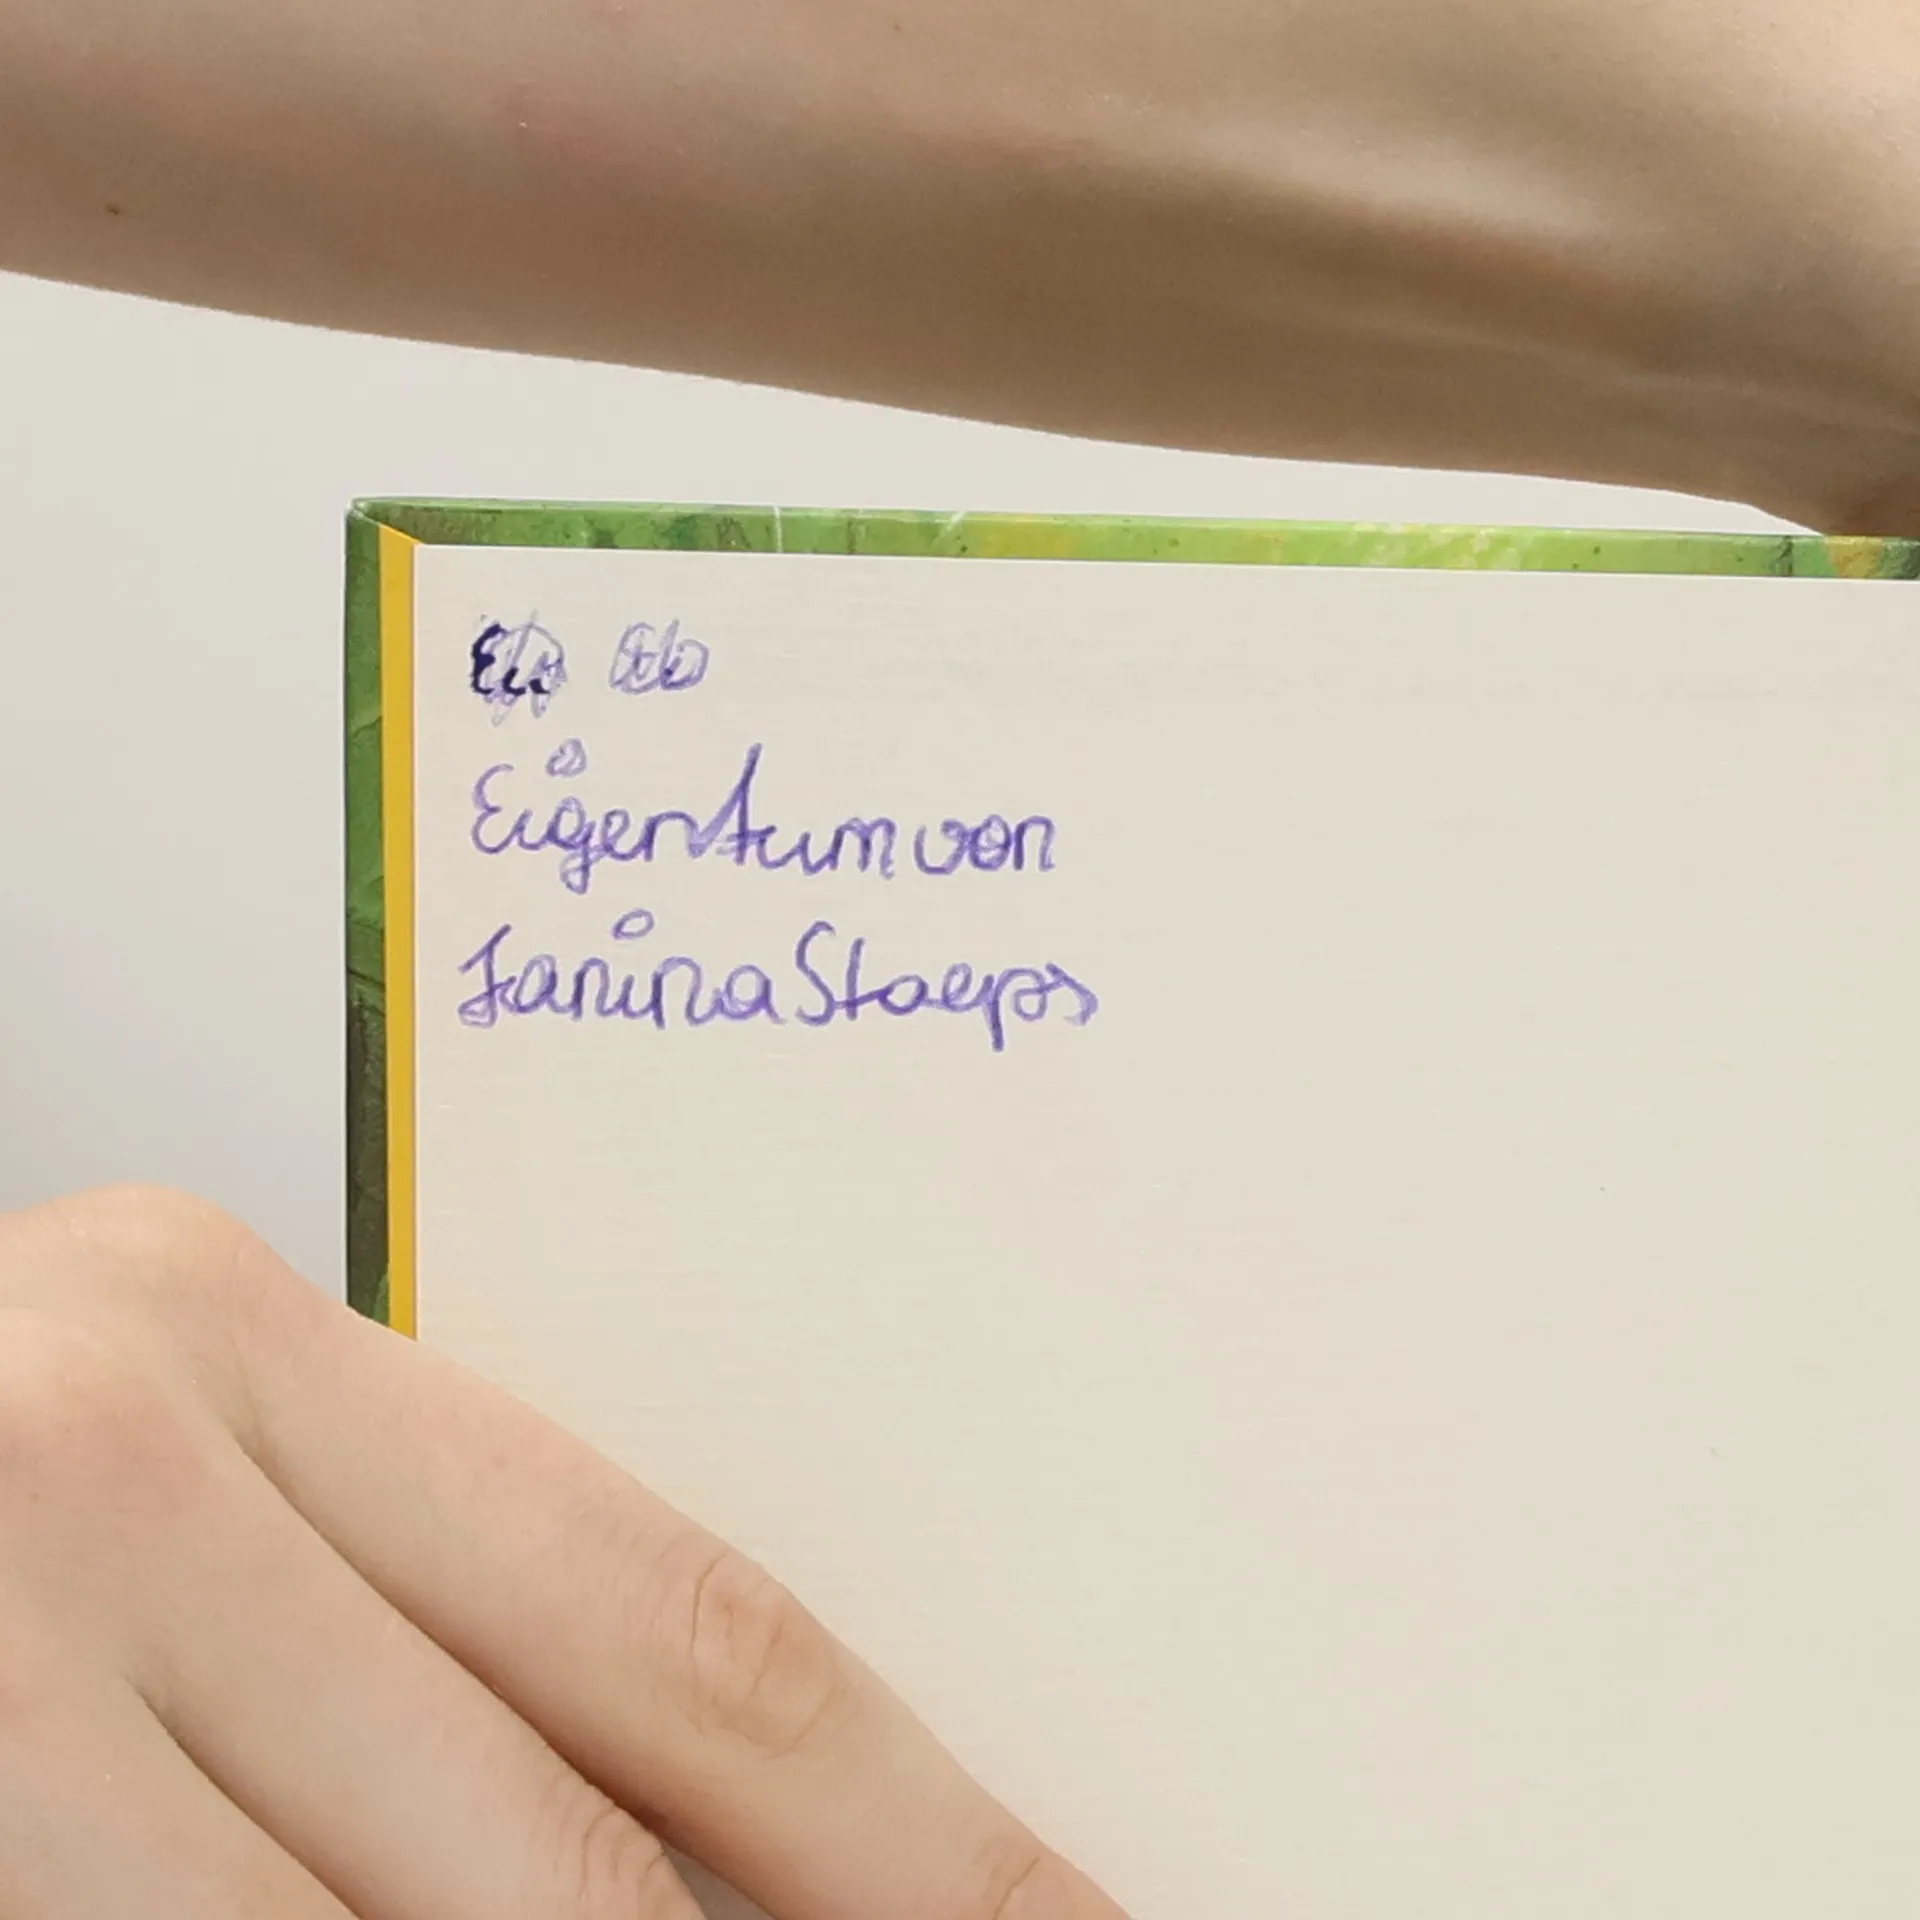 Eigentum von
Janina Staeps